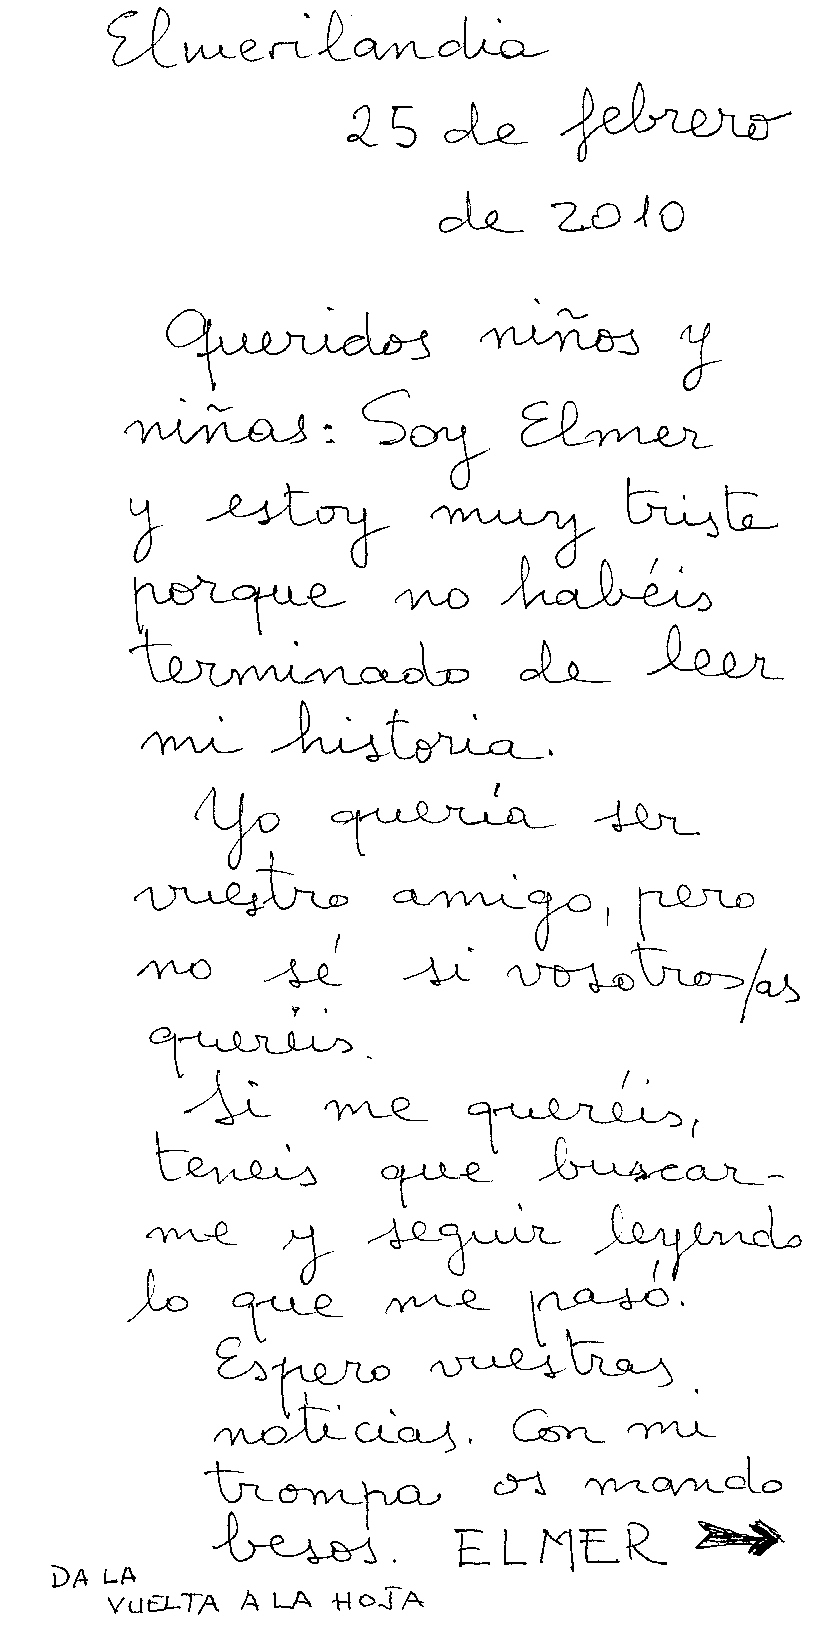 Elmerilandia
25 de febrero
de 2010
Queridos niños y
niñas: Soy Elmer
y estoy muy triste
porque no habéis
terminado de leer
mi historia.
Yo quería ser
vuestro amigo, pero
no sé si vosotros/as
queréis.
Si me queréis,
teneis que buscar-
me y seguir leyendo
lo que me pasó.
Espero vuestras
noticias. Con mi
trompa os mando
besos. ELMER
DA LA
VUELTA A LA HOJA